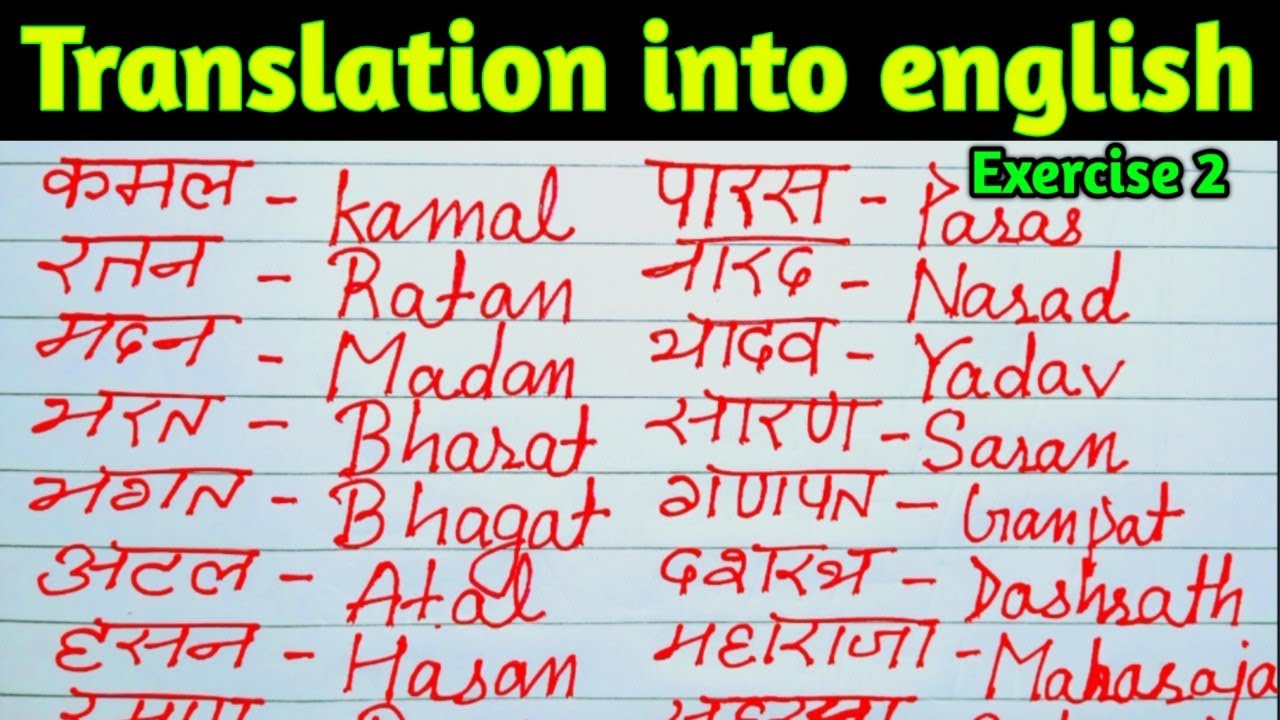 Translation into english
Exercise 2
कमल - Kamal पारस - Paras
रतन - Ratan नारद - Narad
मदन - Madan यादव - Yadav
भरत - Bharat सारण - Saran
भगत - Bhagat गणपत - Ganpat
अटल - Atal दशरथ - Dashrath
हसन - Hasan महाराजा - Maharaja